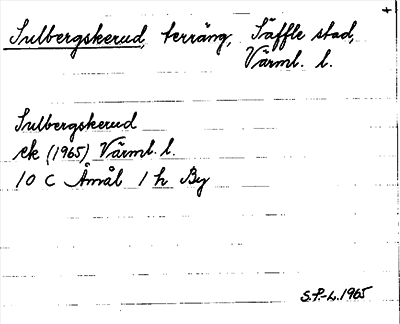 Sulbergskerud, terräng, Säffle stad,
Värml. l.
Sulbergskerud
ek (1965) Värml. l.
10 C Åmål 1 h By
S.P.-L. 1965